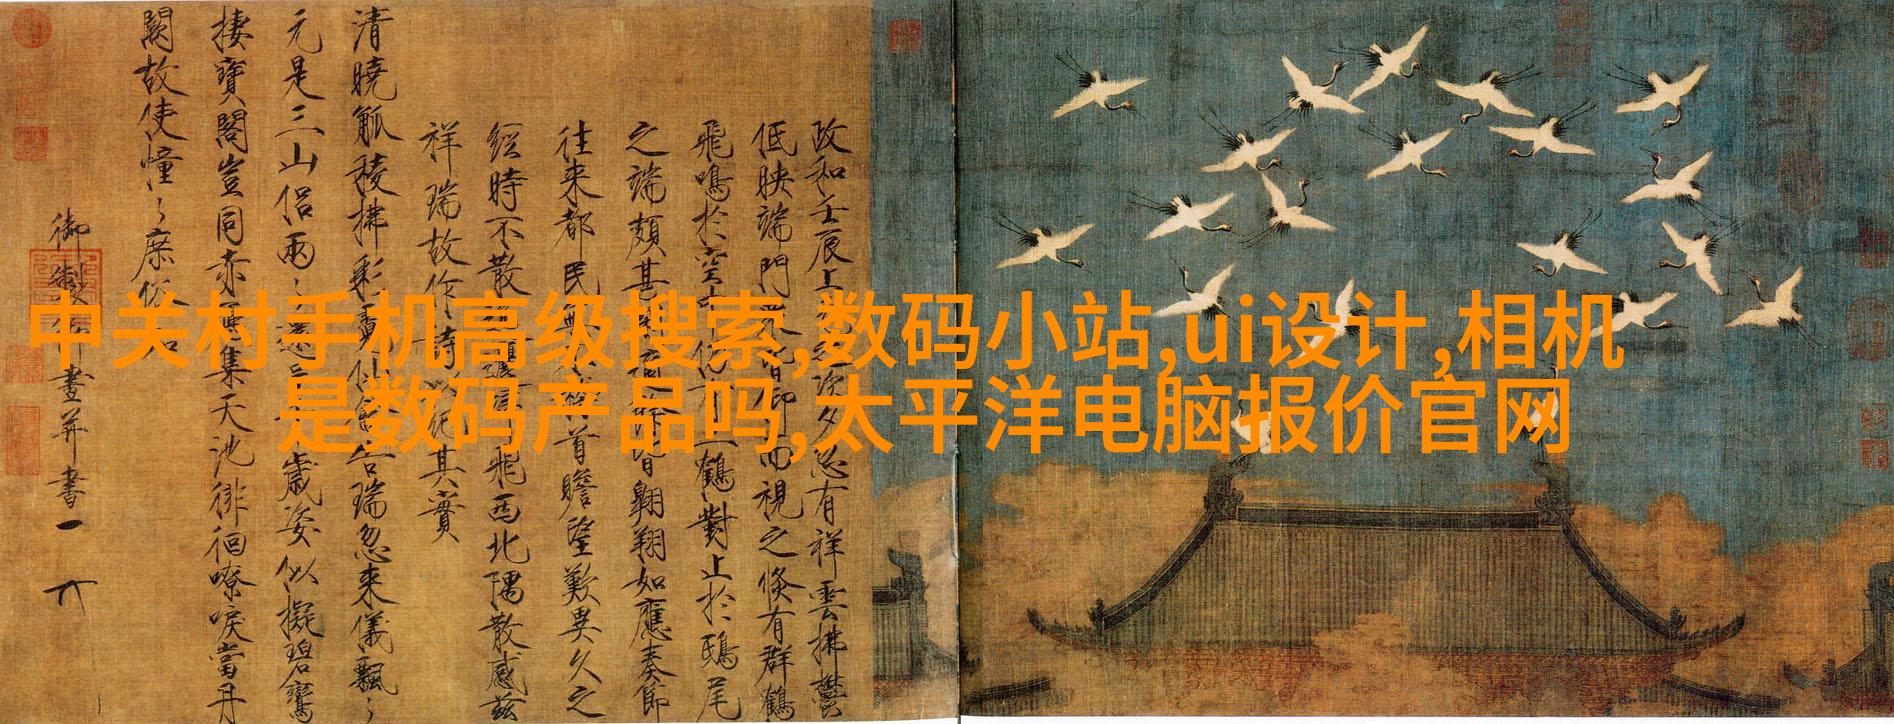 中关村手机高级搜索,数码小站,ui设计,相机
是数码产品吗,太平洋电脑报价官网
政和壬辰上元之次夕忽有祥雲拂鬱
低映端門衆皆仰而視之倏有群鶴
飛鳴於空中仍有二鶴對止於鴟尾
之端頗甚閑適餘皆翱翔如應奏節
往來都民無不稽首瞻望歎異久之
經時不散迤邐歸飛西北隅散感茲
祥瑞故作詩以紀其實
清曉觚稜拂彩霓仙禽告瑞忽來儀飄〻
元是三山侶兩〻還呈千歲姿似擬碧鸞
棲寶閣豈同赤鴈集天池徘徊嘹唳當丹
闕故使憧〻庶俗知
御製御畫并書